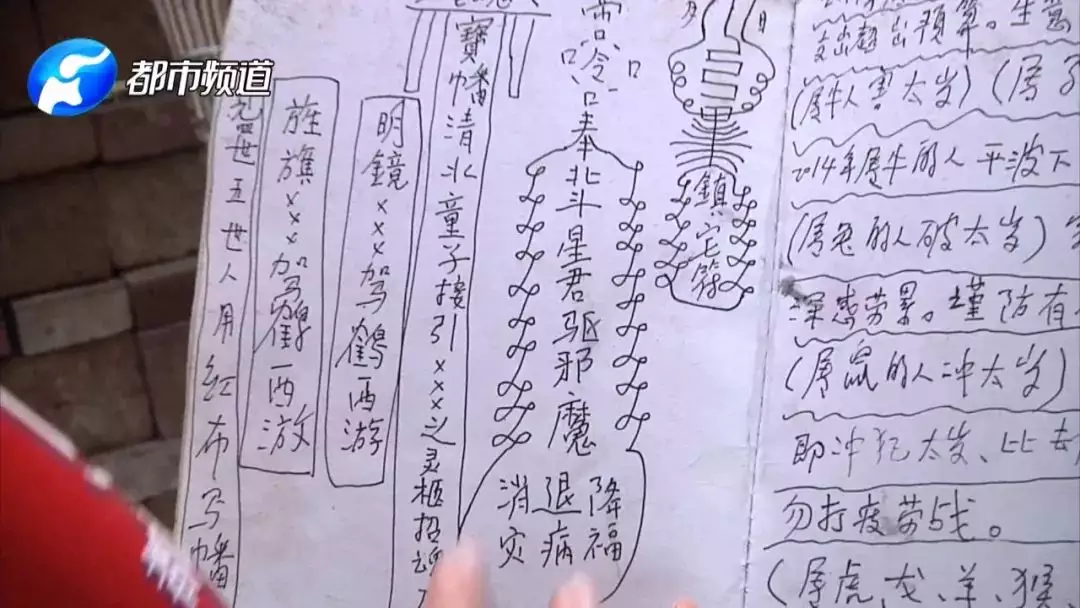 都市频道
世五世人用红布写幡
旌旗×××驾鹤西游
明鏡×××驾鹤西游
寶幡清北童子接引×××之灵柩招魂
奉北斗星君驱邪魔
消退降
灾病福
月
日
鎮宅符
支出超出预算。生意
(属牛人害太岁)(属
2014年属牛的人平波下
(属兔的人破太岁)
深感劳累。谨防有
(属鼠的人冲太岁)
即冲犯太岁、比去
勿打疲劳战。
(属虎、龙、羊、猴、